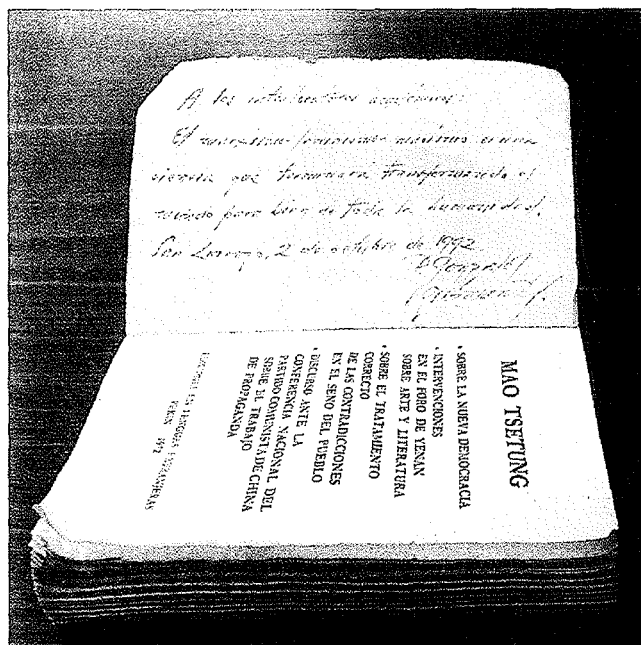 A los
El
ciencia que terminará transformando el
mundo para bien de toda la humanidad.
San Lorenzo, 2 de octubre de 1992
MAO TSETUNG
• SOBRE LA NUEVA DEMOCRACIA
• INTERVENCIONES
EN EL FORO DE YENAN
SOBRE ARTE Y LITERATURA
• SOBRE EL TRATAMIENTO
CORRECTO
DE LAS CONTRADICCIONES
EN EL SENO DEL PUEBLO
• DISCURSO ANTE LA
CONFERENCIA NACIONAL DEL
PARTIDO COMUNISTA DE CHINA
SOBRE EL TRABAJO
DE PROPAGANDA
EN LENGUAS EXTRANJERAS
PEKIN